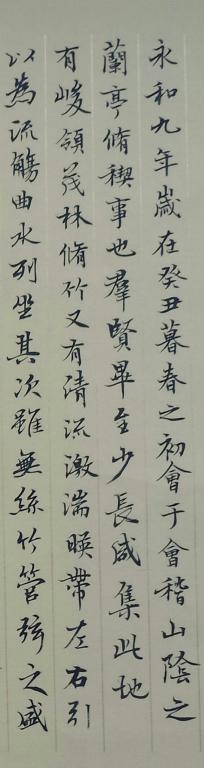 永和九年歲在癸丑暮春之初會于會稽山陰之
蘭亭脩稧事也羣賢畢至少長咸集此地
有峻領茂林脩竹又有清流激湍暎帶左右引
以為流觴曲水列坐其次雖無絲竹管弦之盛